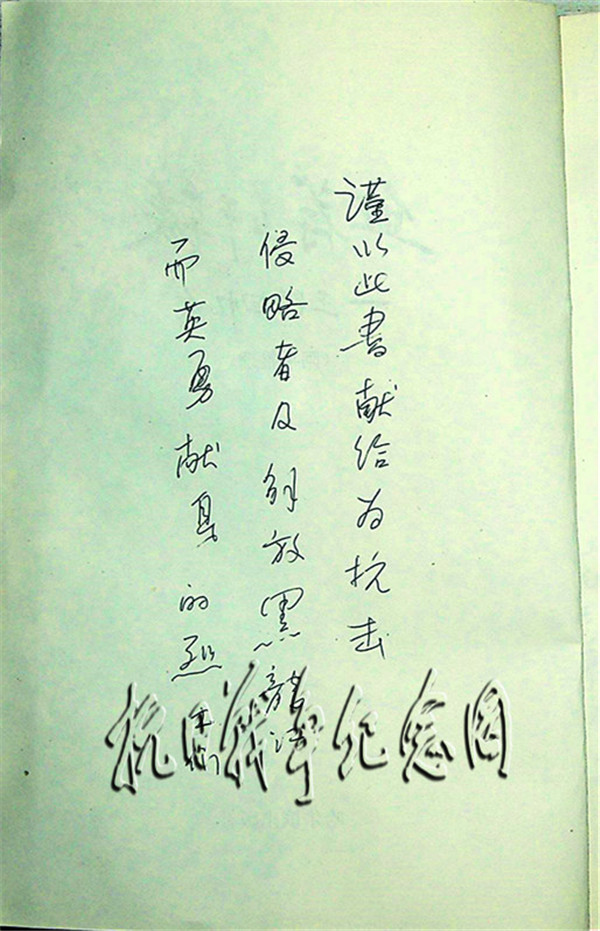 谨以此书献给为抗击
侵略者及解放黑龍江
而英勇献身的烈士们
抗日战争纪念网